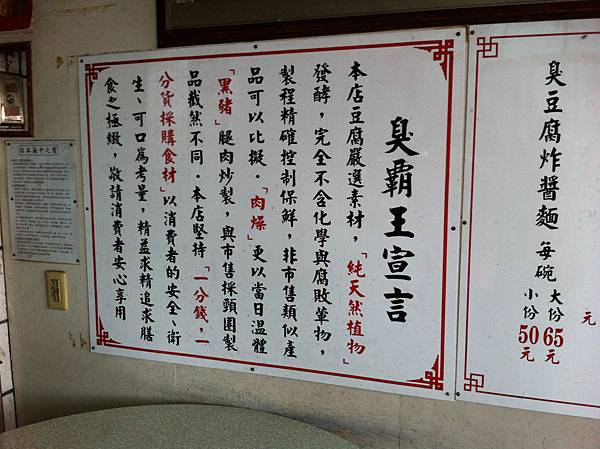 元
臭豆腐炸醬麵 每碗
大份 65元
小份 50元
臭霸王宣言
本店豆腐嚴選素材，「純天然植物」
發酵，完全不含化學與腐敗葷物，
製程精確控制保鮮，非市售類似產
品可以比擬．「肉燥」更以當日溫體
「黑豬」腿肉炒製，與市售採頸圈製
品截然不同．本店堅持「一分錢，一
分貨採購食材」以消費者的安全、衛
生、可口為考量，精益求精追求膳
食之極緻，敬請消費者安心享用